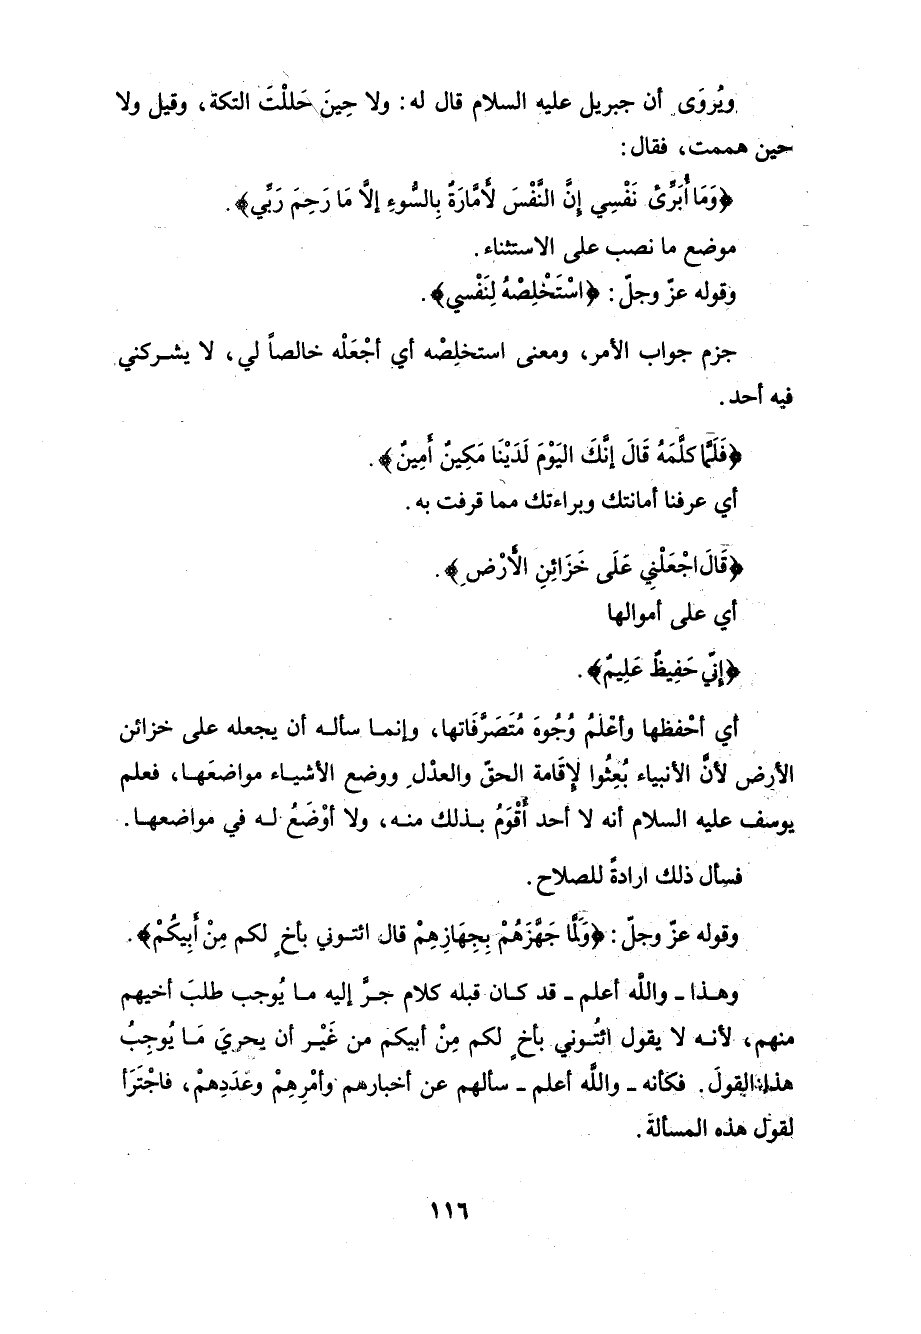 ويُروَى أن جبريل عليه السلام قال له: ولا حِينَ حَللْتَ التكة، وقيل ولا
حين هممت، فقال:
﴿وَمَا أُبَرِّئُ نَفْسِي إِنَّ النَّفْسَ لَأمَّارَةٌ بِالسُّوءِ إلَّا مَا رَحِمَ رَبِّي﴾.
موضع ما نصب على الاستثناء.
وقوله عزّ وجلّ: ﴿اسْتَخْلِصْهُ لِنَفْسي﴾.
جزم جواب الأمر، ومعنى استخلِصْه أي أجْعَلْه خالصاً لي، لا يشـركني
فيه أحد.
﴿فَلَمَّا كلَّمَهُ قَالَ إنَّكَ اليَوْمَ لَدَيْنَا مَكِينٌ أَمِينٌ﴾.
أي عرفنا أمانتك وبراءتك مما قرفت به.
﴿قَالَ اجْعَلْنِي عَلَى خَزَائِنِ الأَرْضِ﴾.
أي على أموالها
﴿إِنِّي حَفِيظٌ عَلِيمٌ﴾.
أي أحْفظها وأعْلمُ وُجُوهَ مُتَصَرَّفَاتها، وإنمـا سألـه أن يجعله على خزائن
الأرض لأنَّ الأنبياء بُعِثُوا لإقامة الحقّ والعدْلِ ووضع الأشيـاء مواضعَهـا، فعلم
يوسف عليه السلام أنه لا أحد أقْوَمُ بـذلك منـه، ولا أوْضَعُ لـه في مواضعهـا.
فسأل ذلك ارادةً للصلاح.
وقوله عزّ وجلّ: ﴿وَلَمَّا جَهَّزَهُمْ بِجِهَازِهِمْ قال ائتـوني بأخٍ لكم مِنْ أَبِيكُمْ﴾.
وهـذا - واللَّه أعلم - قد كـان قبله كلام جـرَّ إليه مـا يُوجب طلبَ أخيهم
منهم، لأنـه لا يقول ائتُـوني بأخٍ لكم مِنْ أبيكم من غَيْـرِ أن يجريَ مَـا يُوجِبُ
هذا القولَ. فكأنه - واللَّه أعلم - سألهم عن أخبارهم وأمْرِهِمْ وعَدَدِهمْ، فاجْتَرَأ
لقول هذه المسألة.
١١٦